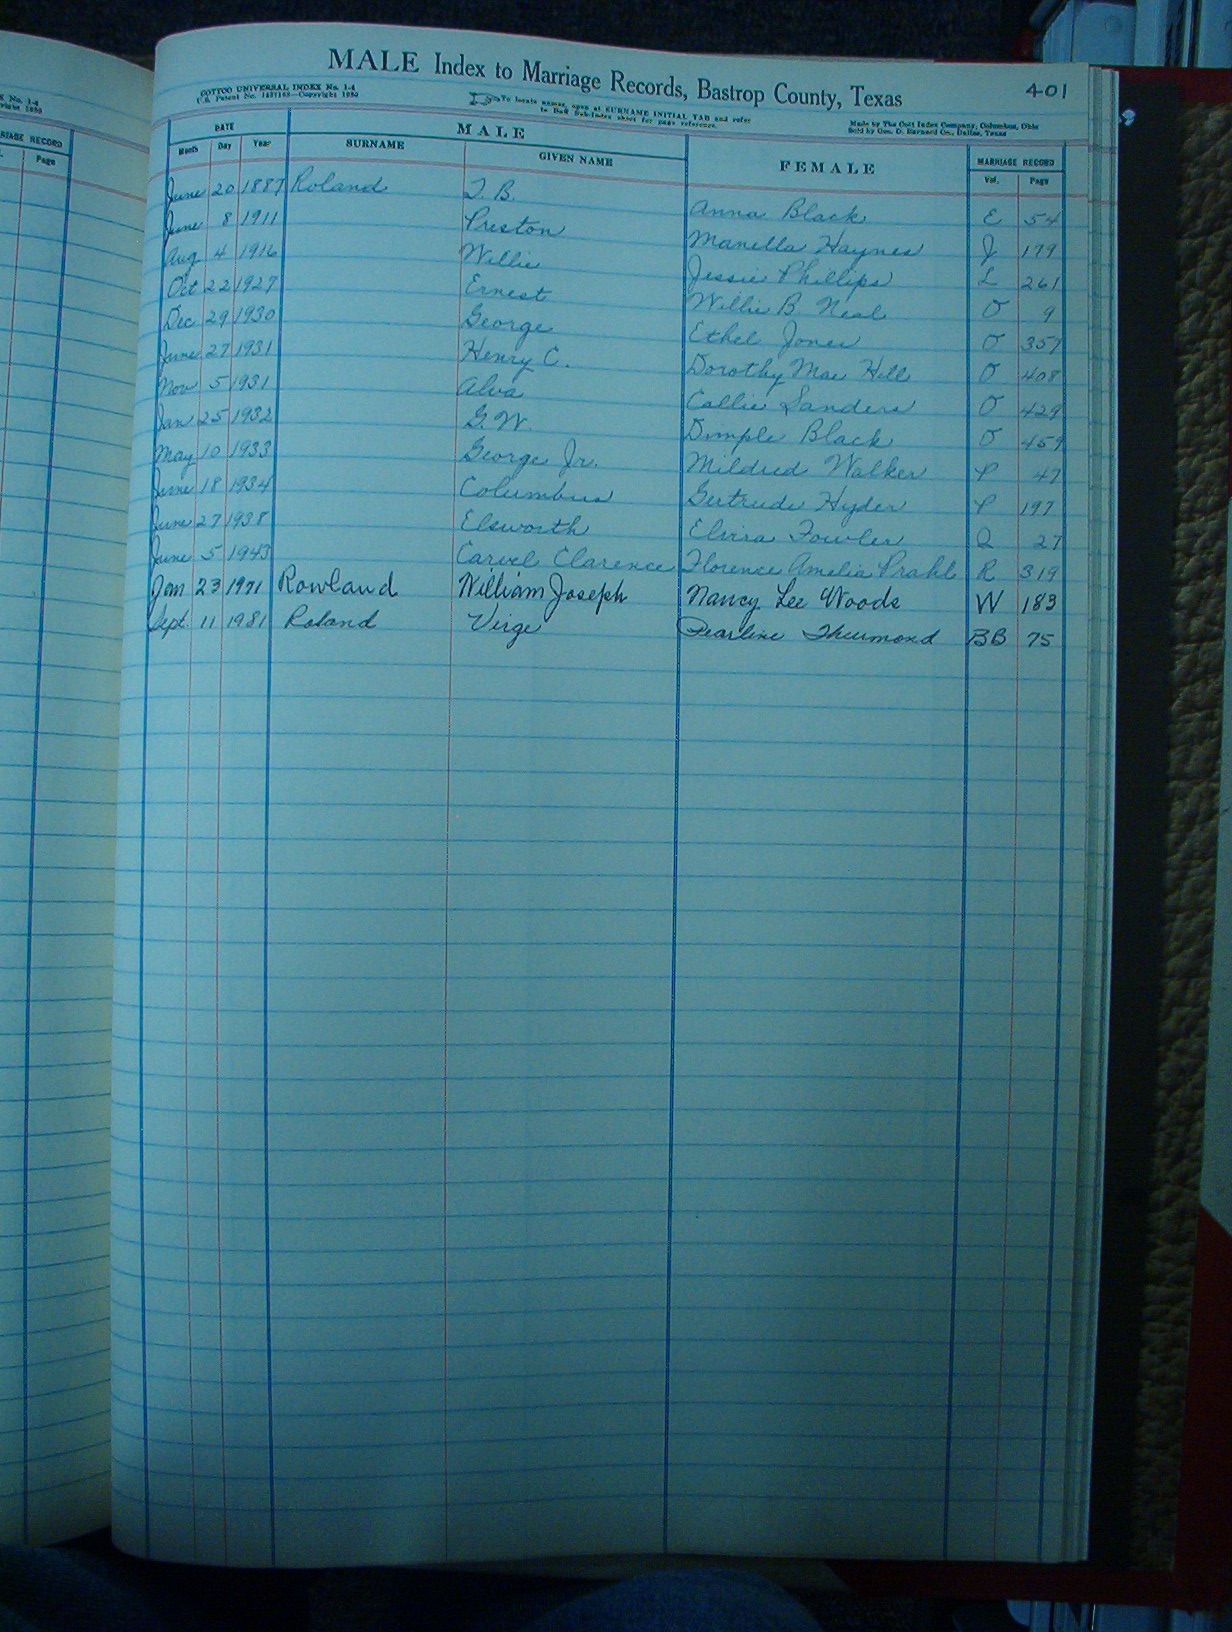 X No. 1-4
right 1930
RIAGE RECORD
Page
MALE Index to Marriage Records, Bastrop County, Texas
401
COTTCO UNIVERSAL INDEX No. 1-4
U.S. Patent No. Copyright 1930
To locate names, open at SURNAME INITIAL TAB and refer
to Buff Sub-Index sheet for page reference.
Made by The Cott Index Company, Columbus, Ohio
Sold by Geo. D. Barnard Co., Dallas, Texas
DATE MALE FEMALE MARRIAGE RECORD
Month Day Year SURNAME GIVEN NAME Vol. Page
June 20 1887 Roland T. B. Anna Black E 54
June 8 1911 Preston Manella Haynes J 179
Aug 4 1916 Willie Jessie Phillips L 261
Oct 22 1927 Ernest Willie B. Neal O 9
Dec 29 1930 George Ethel Jones O 357
June 27 1931 Henry C. Dorothy Mae Hill O 408
Nov 5 1931 Alva Callie Sanders O 429
Jan 25 1932 G. W. Dimple Black O 459
May 10 1933 George Jr. Mildred Walker P 47
June 18 1934 Columbus Gertrude Hyder P 197
June 27 1938 Elsworth Elvira Fowler Q 27
June 5 1943 Carvel Clarence Florence Amelia Prahl R 319
Jan 23 1971 Rowland William Joseph Nancy Lee Woods W 183
Sept. 11 1981 Roland Virge Pearline Thurmond BB 75